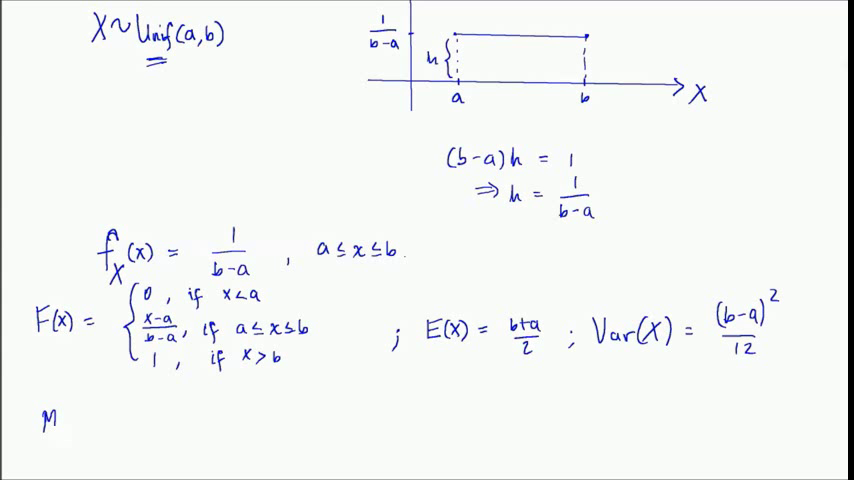 X ~ Unif(a,b)
1/(b-a)
h {
a b X
(b-a)h = 1
⇒ h = 1/(b-a)
f_X(x) = 1/(b-a) , a ≤ x ≤ b.
F(x) = { 0 , if x < a
(x-a)/(b-a), if a ≤ x ≤ b ; E(X) = (b+a)/2 ; Var(X) = (b-a)²/12
1 , if x > b
M